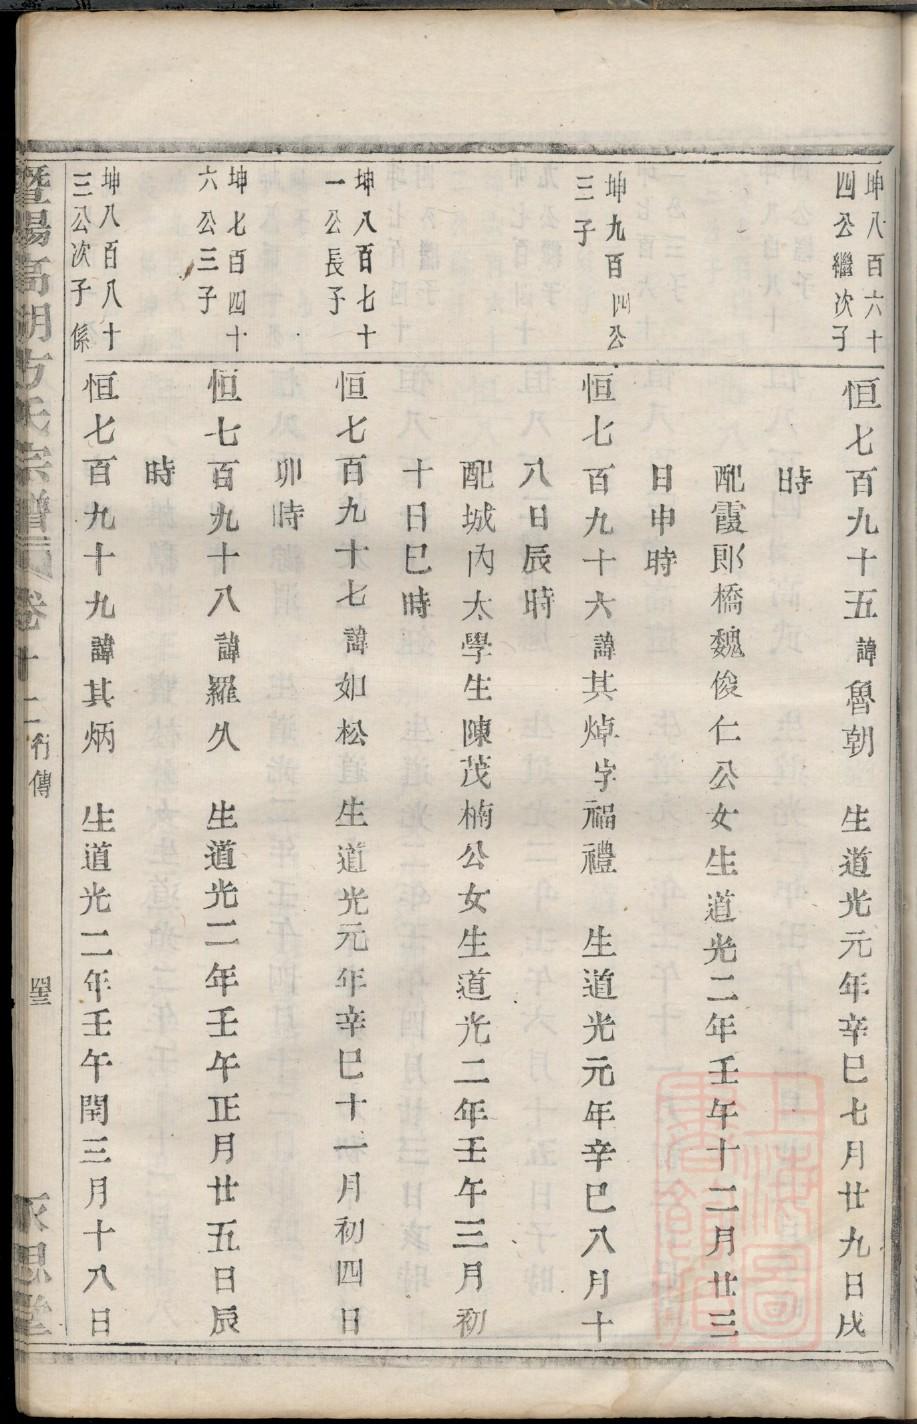 坤八百六十
四公繼次子
恒七百九十五諱魯朝　生道光元年辛巳七月廿九日戌
時
配霞郎橋魏俊仁公女生道光二年壬午十二月廿三
日申時
坤九百四公
三子
恒七百九十六諱其焯字福禮　生道光元年辛巳八月十
八日辰時
配城內太學生陳茂楠公女生道光二年壬午三月初
十日巳時
坤八百七十
一公長子
恒七百九十七諱如松　生道光元年辛巳十一月初四日
卯時
坤七百四十
六公三子
恒七百九十八諱羅久　生道光二年壬午正月廿五日辰
時
坤八百八十
三公次子係
恒七百九十九諱其炳　生道光二年壬午閏三月十八日
暨陽高湖方氏宗譜　卷十二行傳
永思堂
上海圖書館藏